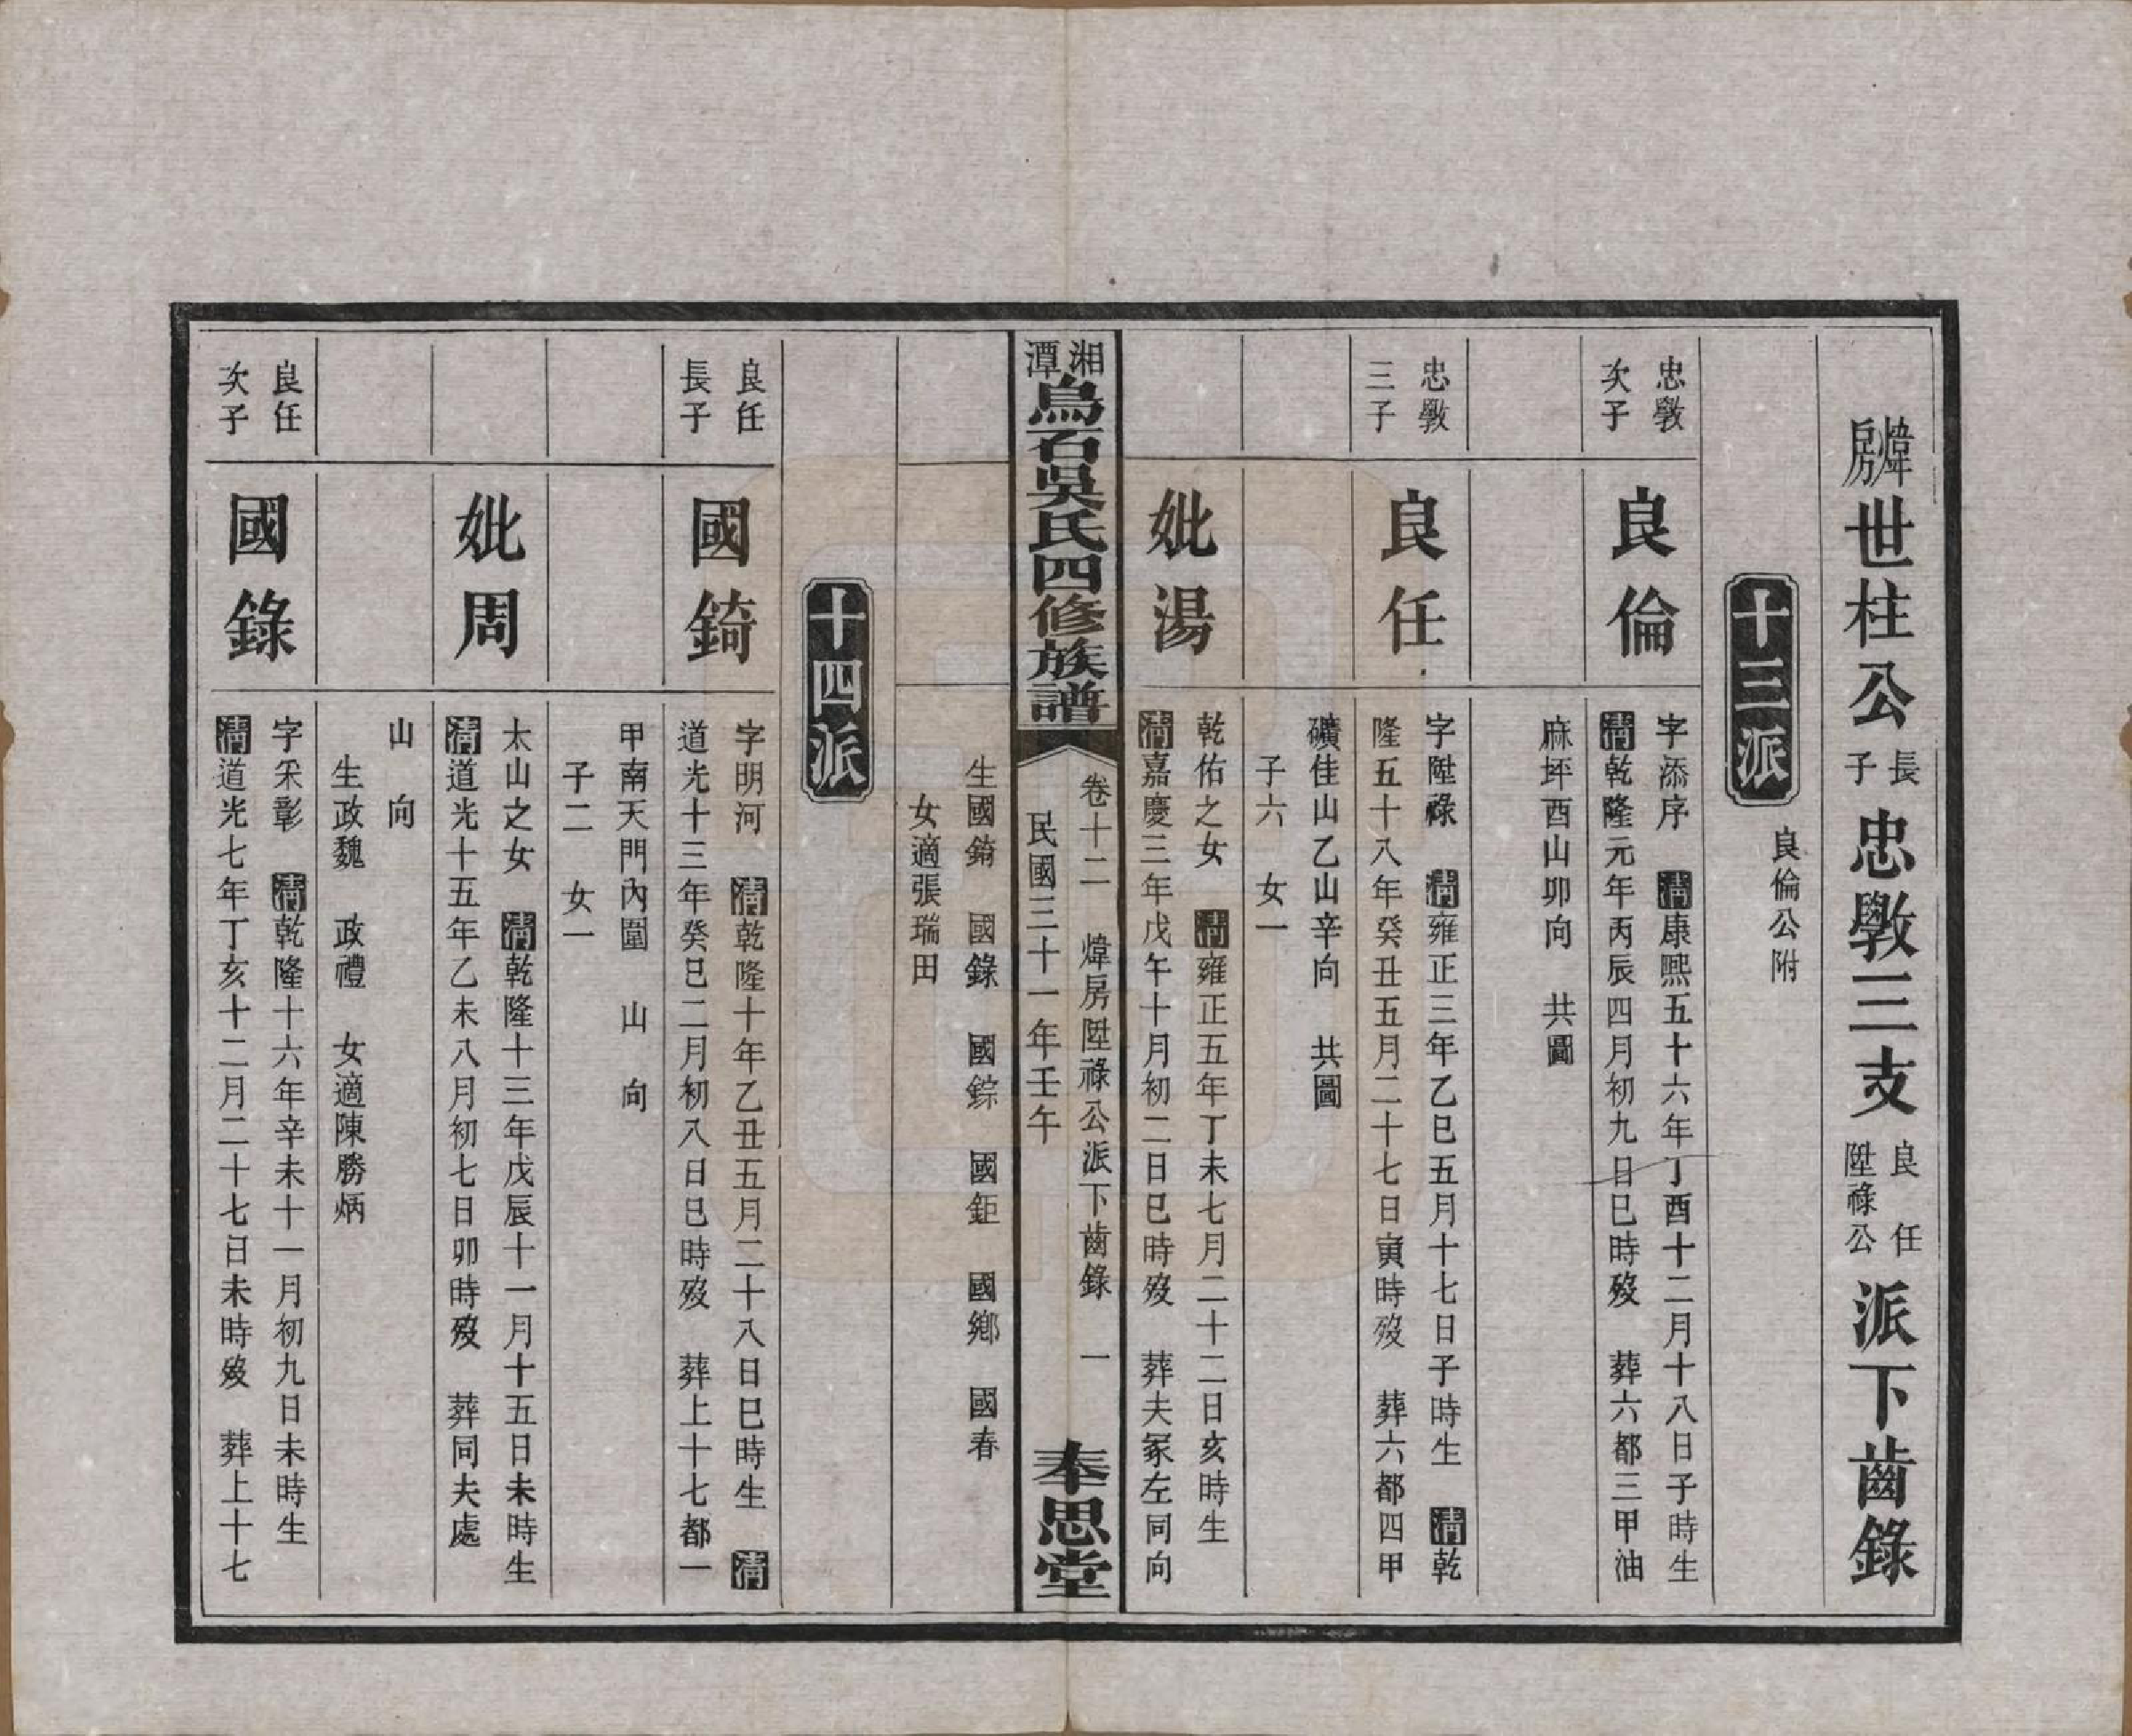 煒房世柱公長子忠斆三支良任陞祿公派下齒錄
十三派
良倫公附
忠斆次子
良倫
字添序 清康熙五十六年丁酉十二月十八日子時生
清乾隆元年丙辰四月初九日巳時歿 葬六都三甲油
麻坪酉山卯向 共圖
忠斆三子
良任
字陞祿 清雍正三年乙巳五月十七日子時生 清乾
隆五十八年癸丑五月二十七日寅時歿 葬六都四甲
礦佳山乙山辛向 共圖
子六 女一
妣湯
乾佑之女 清雍正五年丁未七月二十二日亥時生
清嘉慶三年戊午十月初二日巳時歿 葬夫冢左同向
湘潭烏石吳氏四修族譜
卷十二 煒房陞祿公派下齒錄 一
民國三十一年壬午
奉思堂
生國錡 國錄 國錝 國鉅 國鄉 國春
女適張瑞田
十四派
良任長子
國錡
字明河 清乾隆十年乙丑五月二十八日巳時生 清
道光十三年癸巳二月初八日巳時歿 葬上十七都一
甲南天門內圍 山 向
子二 女一
妣周
太山之女 清乾隆十三年戊辰十一月十五日未時生
清道光十五年乙未八月初七日卯時歿 葬同夫處
山 向
生政魏 政禮 女適陳勝炳
良任次子
國錄
字釆彰 清乾隆十六年辛未十一月初九日未時生
清道光七年丁亥十二月二十七日未時歿 葬上十七